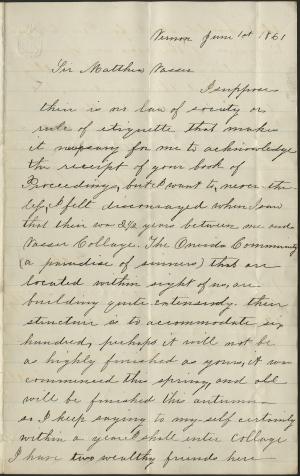 Vernon June 1st 1861
Sir Matthew Vasser
I suppose
there is no law of society or
rule of etiquette that makes
it necessary for me to acknowledge
the receipt of your book of
Proceedings, but I want to, never the
less, I felt discouraged when I saw
that there was 2½ years between me and
Vasser Collage. The Oneida Community
(a paradise of sinners) that are
located within sight of us, are
building quite extensively. their
structure is to accommodate six
hundred, perhaps it will not be
as highly finished as yours, it was
commenced this spring, and all
will be finished this autumn
so I keep saying to my self certainly
within a year I shall enter Collage
I have two wealthy friends here